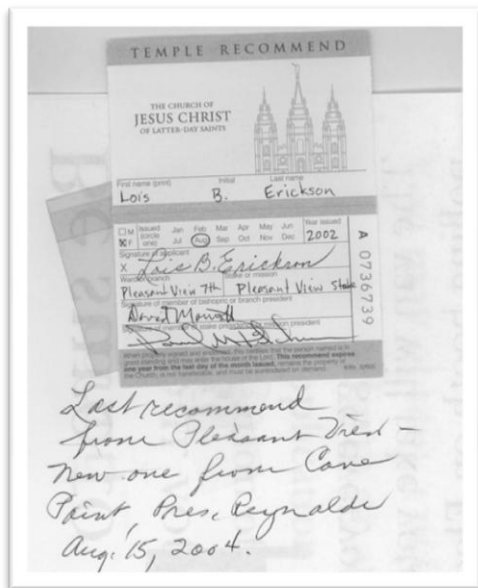 TEMPLE RECOMMEND
THE CHURCH OF
JESUS CHRIST
OF LATTER-DAY SAINTS
First name (print) Initial Last name
Lois B. Erickson
M Issued (circle one) Jan Feb Mar Apr May Jun Year issued
X F Jul Aug Sep Oct Nov Dec 2002
A 0736739
Signature of applicant
X Lois B. Erickson
Ward or branch Stake or mission
Pleasant View 7th Pleasant View Stake
Signature of member of bishopric or branch president
Signature of member of stake presidency or mission president
When properly signed and endorsed, this certifies that the person named is in
good standing and may enter the house of the Lord. This recommend expires
one year from the last day of the month issued, remains the property of
the Church, is not transferable, and must be surrendered on demand.
Last recommend
from Pleasant View –
New one from Cove
Point, Pres. Reynolds
Aug. 15, 2004.